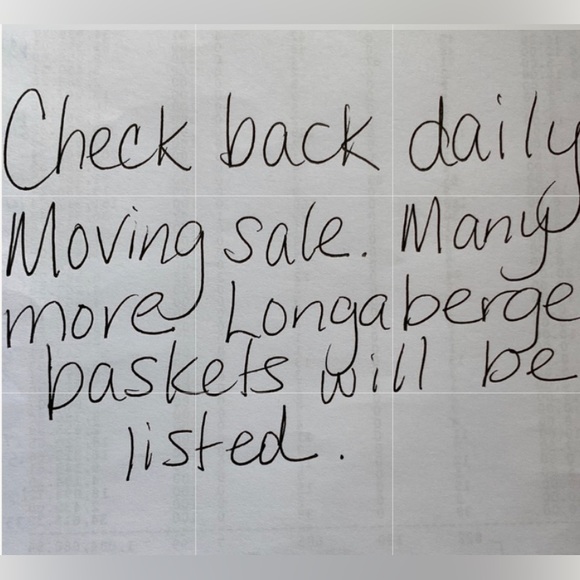 Check back daily
Moving sale. Many
more Longaberge
baskets will be
listed.